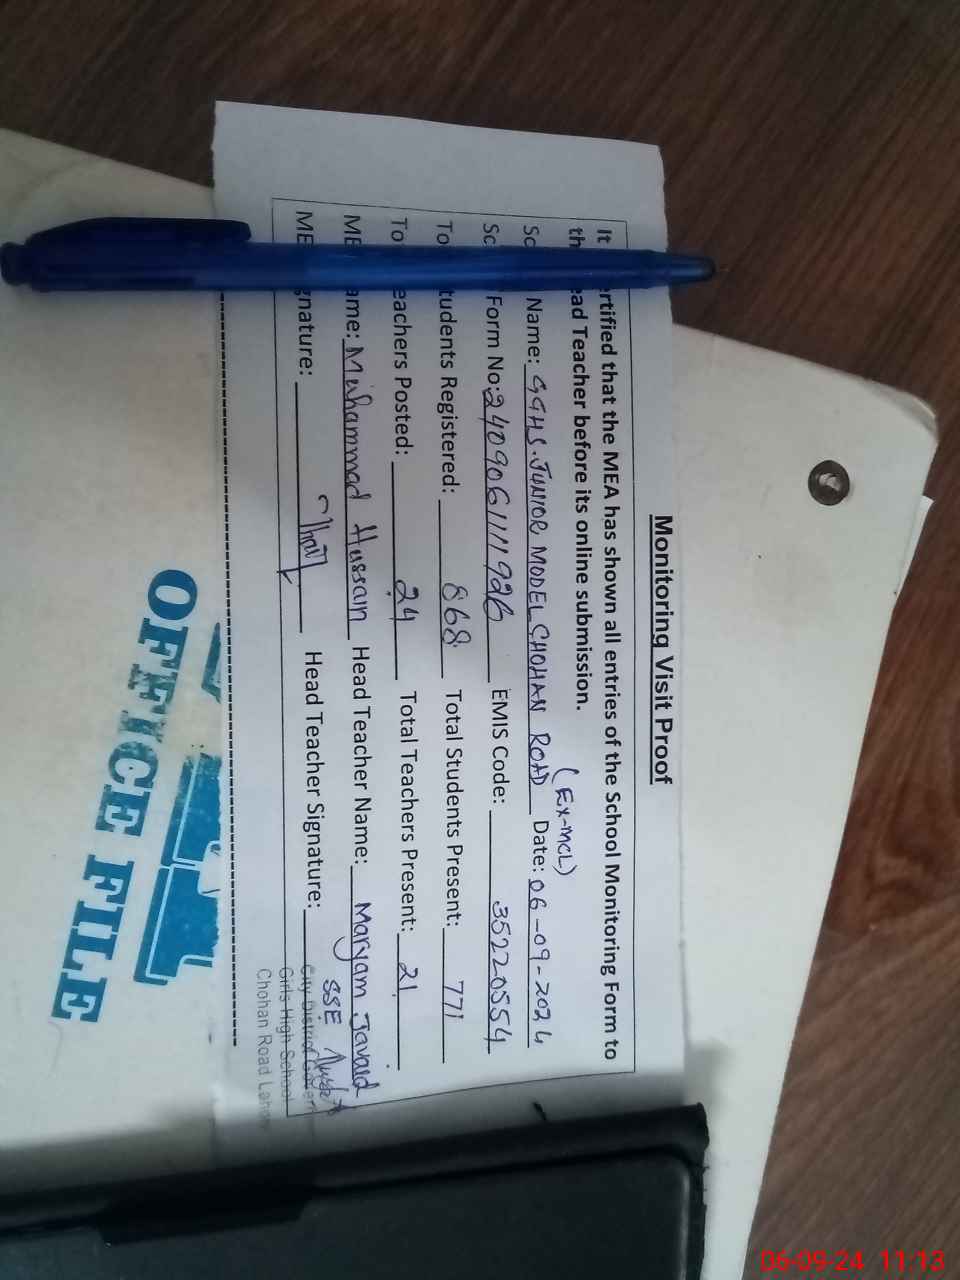 Monitoring Visit Proof
It ertified that the MEA has shown all entries of the School Monitoring Form to
th ead Teacher before its online submission.
(EX-MCL)
Sc Name: GGHS.JUNIOR MODEL CHOHAN ROAD Date: 06-09-2024
Sc Form No: EMIS Code: 35220554
To tudents Registered: 868 Total Students Present: 771
To eachers Posted: 24 Total Teachers Present: 21
ME ame: Muhammad Hussain Head Teacher Name: Maryam Javaid
SSE
ME gnature: Head Teacher Signature:
City District Govern
Girls High School
Chohan Road Lahor
OFFICE FILE
06-09-24 11:13